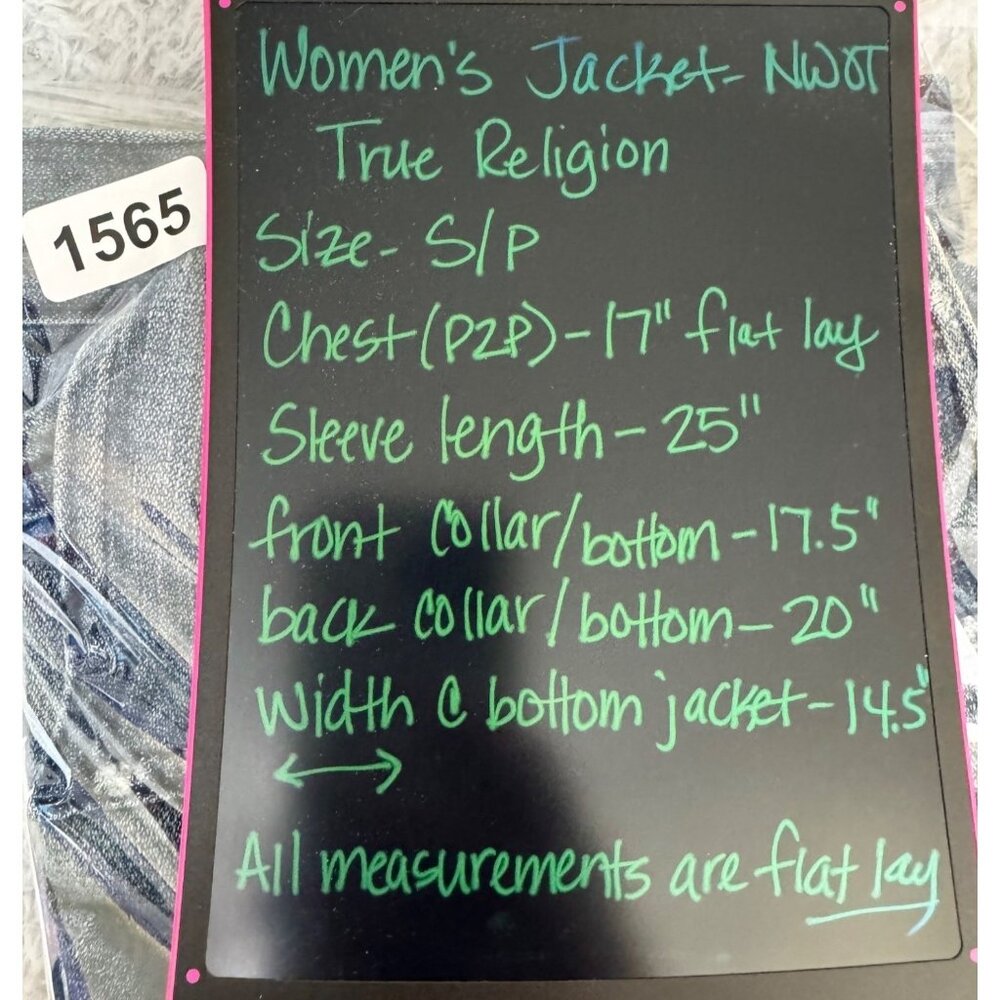 Women's Jacket- NWOT
True Religion
1565
Size- S/P
Chest (P2P) - 17" flat lay
Sleeve length - 25"
front collar/bottom - 17.5"
back collar/bottom - 20"
Width @ bottom jacket - 14.5"
All measurements are flat lay